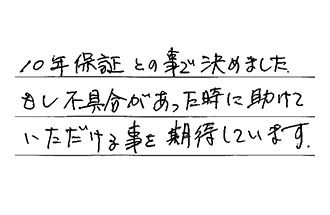 10年保証との事で決めました.
もし不具合があった時に助けて
いただける事を期待しています.